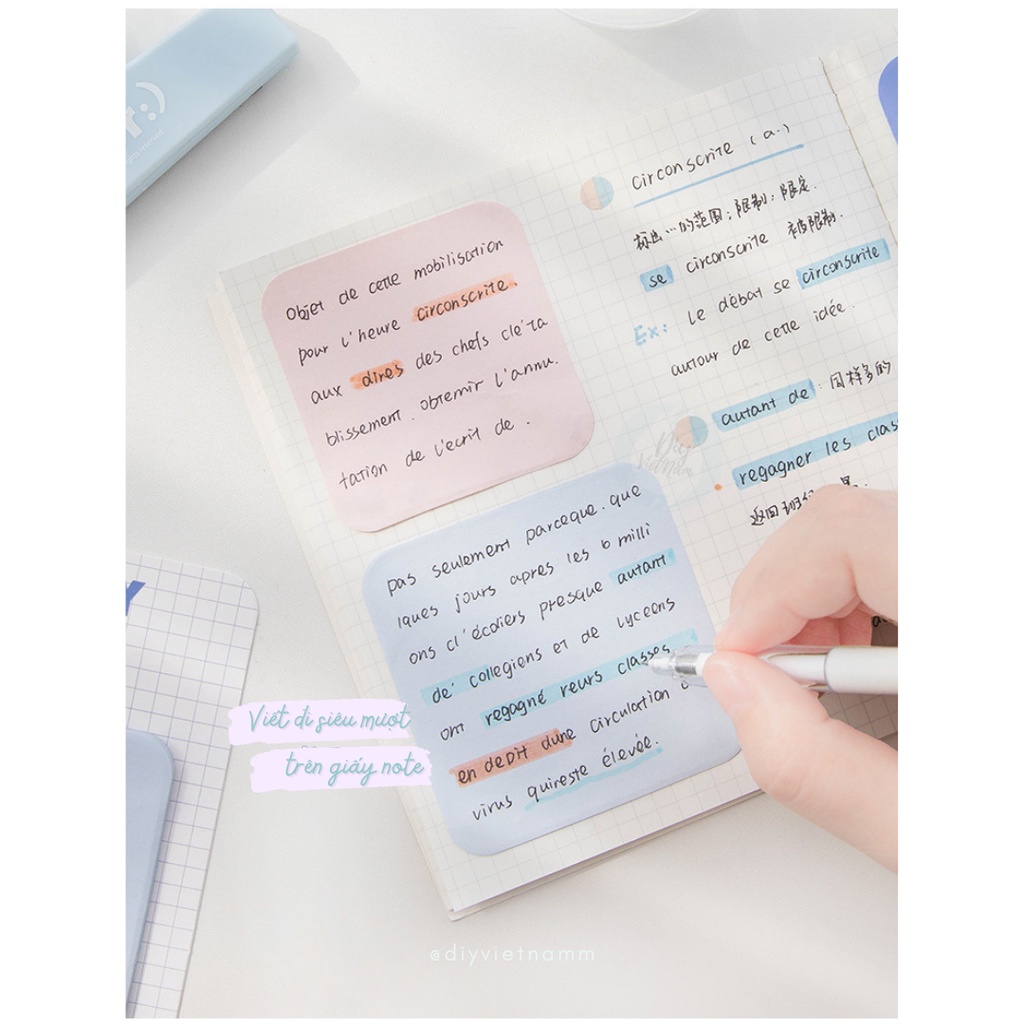 r:)
Objet de cette mobilisation
pour l'heure circonscrite.
aux dires des chefs cle'ta
blissement. obtemir l'annu.
tation de l'ecrit de.
pas seulement parceque. que
lques jours apres les 6 milli
ons cl'écoliers presque autant
de' collegiens et de lyceens
ont regagné reurs classes
en depit dune circulation
virus quireste élevée.
circonscrite (a.)
标出…的范围；限制；限定.
se circonscrite 被限制.
Ex: Le débat se circonscrite
autour de cette idée.
autant de: 同样多的
regagner les class
返回班
Diy
Vietnam
Viết đi siêu mượt
trên giấy note
@diyvietnamm